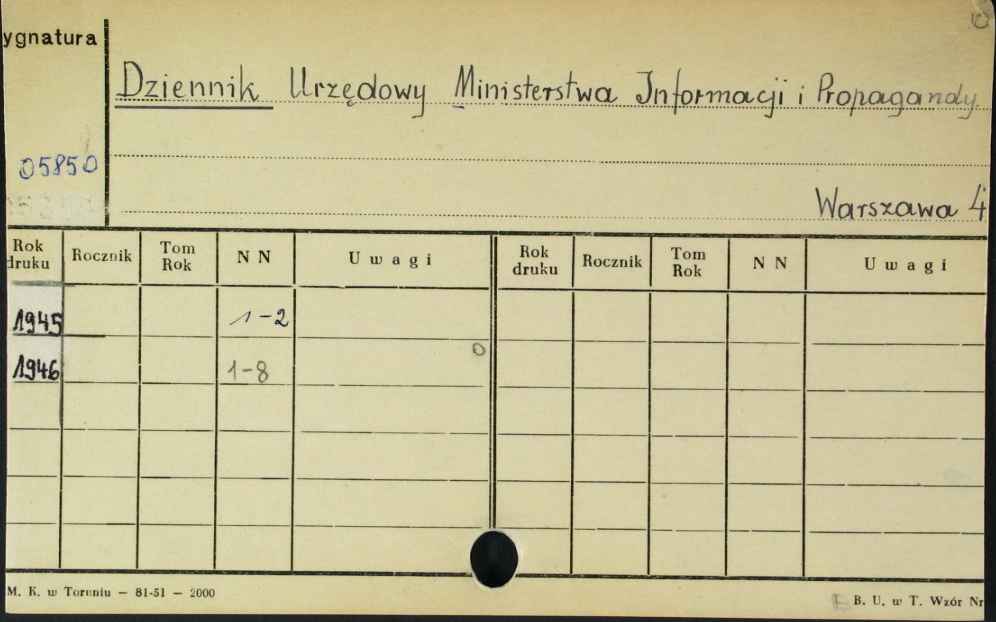 ygnatura
Dziennik Urzędowy Ministerstwa Informacji i Propagandy
05850
Warszawa 4
Rok druku Rocznik Tom Rok NN Uwagi Rok druku Rocznik Tom Rok NN Uwagi
1945 1-2
1946 1-8
M. K. w Toruniu — 81-51 — 2000
B. U. w T. Wzór Nr